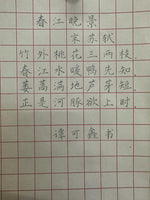 春江晚景
宋苏轼
竹外桃花三两枝.
春江水暖鸭先知.
蒌蒿满地芦芽短.
正是河豚欲上时.
谭可鑫书